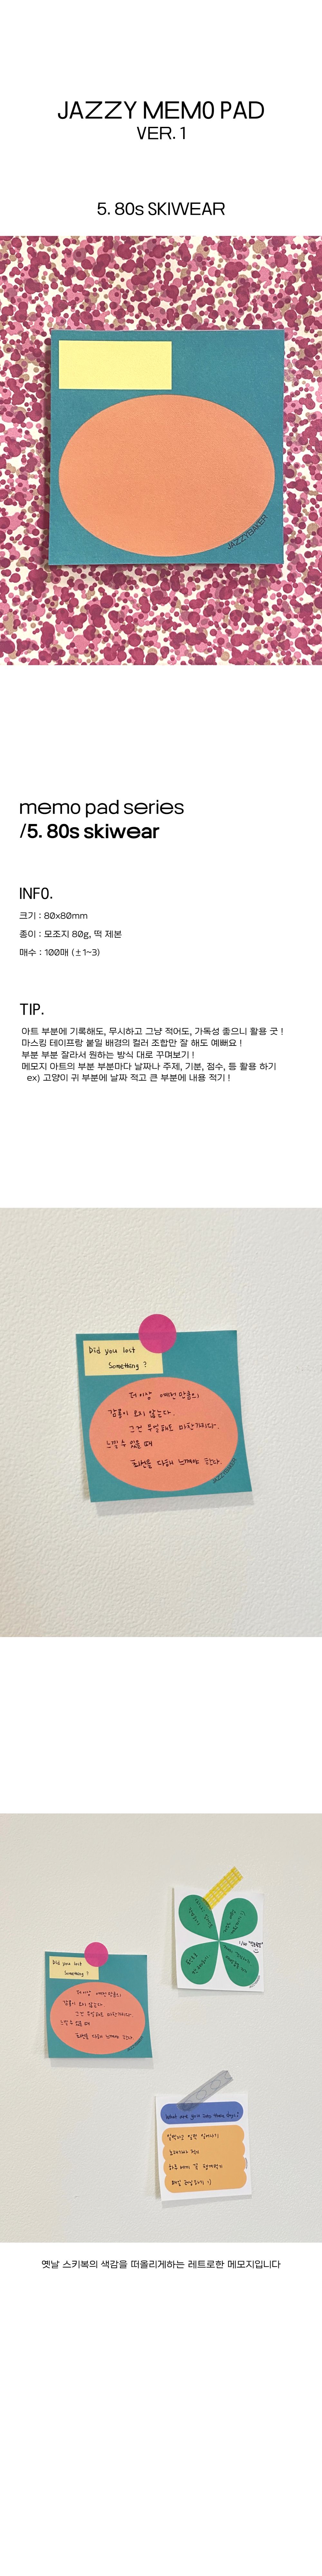 JAZZY MEMO PAD
VER. 1
5. 80s SKIWEAR
JAZZYBAKER
memo pad series
/5. 80s skiwear
INFO.
크기 : 80x80mm
종이 : 모조지 80g, 떡 제본
매수 : 100매 (±1~3)
TIP.
아트 부분에 기록해도, 무시하고 그냥 적어도, 가독성 좋으니 활용 굿 !
마스킹 테이프랑 붙일 배경의 컬러 조합만 잘 해도 예뻐요 !
부분 부분 잘라서 원하는 방식 대로 꾸며보기 !
메모지 아트의 부분 부분마다 날짜나 주제, 기분, 점수, 등 활용 하기
ex) 고양이 귀 부분에 날짜 적고 큰 부분에 내용 적기 !
Did you lost
Something ?
더이상 예전만큼의
감흥이 오지 않는다.
그건 무얼해도 마찬가지다.
느낄 수 있을 때
최선을 다해 느껴야 한다.
JAZZYBAKER
Did you lost
Something ?
더이상 예전만큼의
감흥이 오지 않는다.
그건 무얼해도 마찬가지다.
느낄 수 있을 때
최선을 다해 느껴야 한다.
What are your
옛날 스키복의 색감을 떠올리게하는 레트로한 메모지입니다